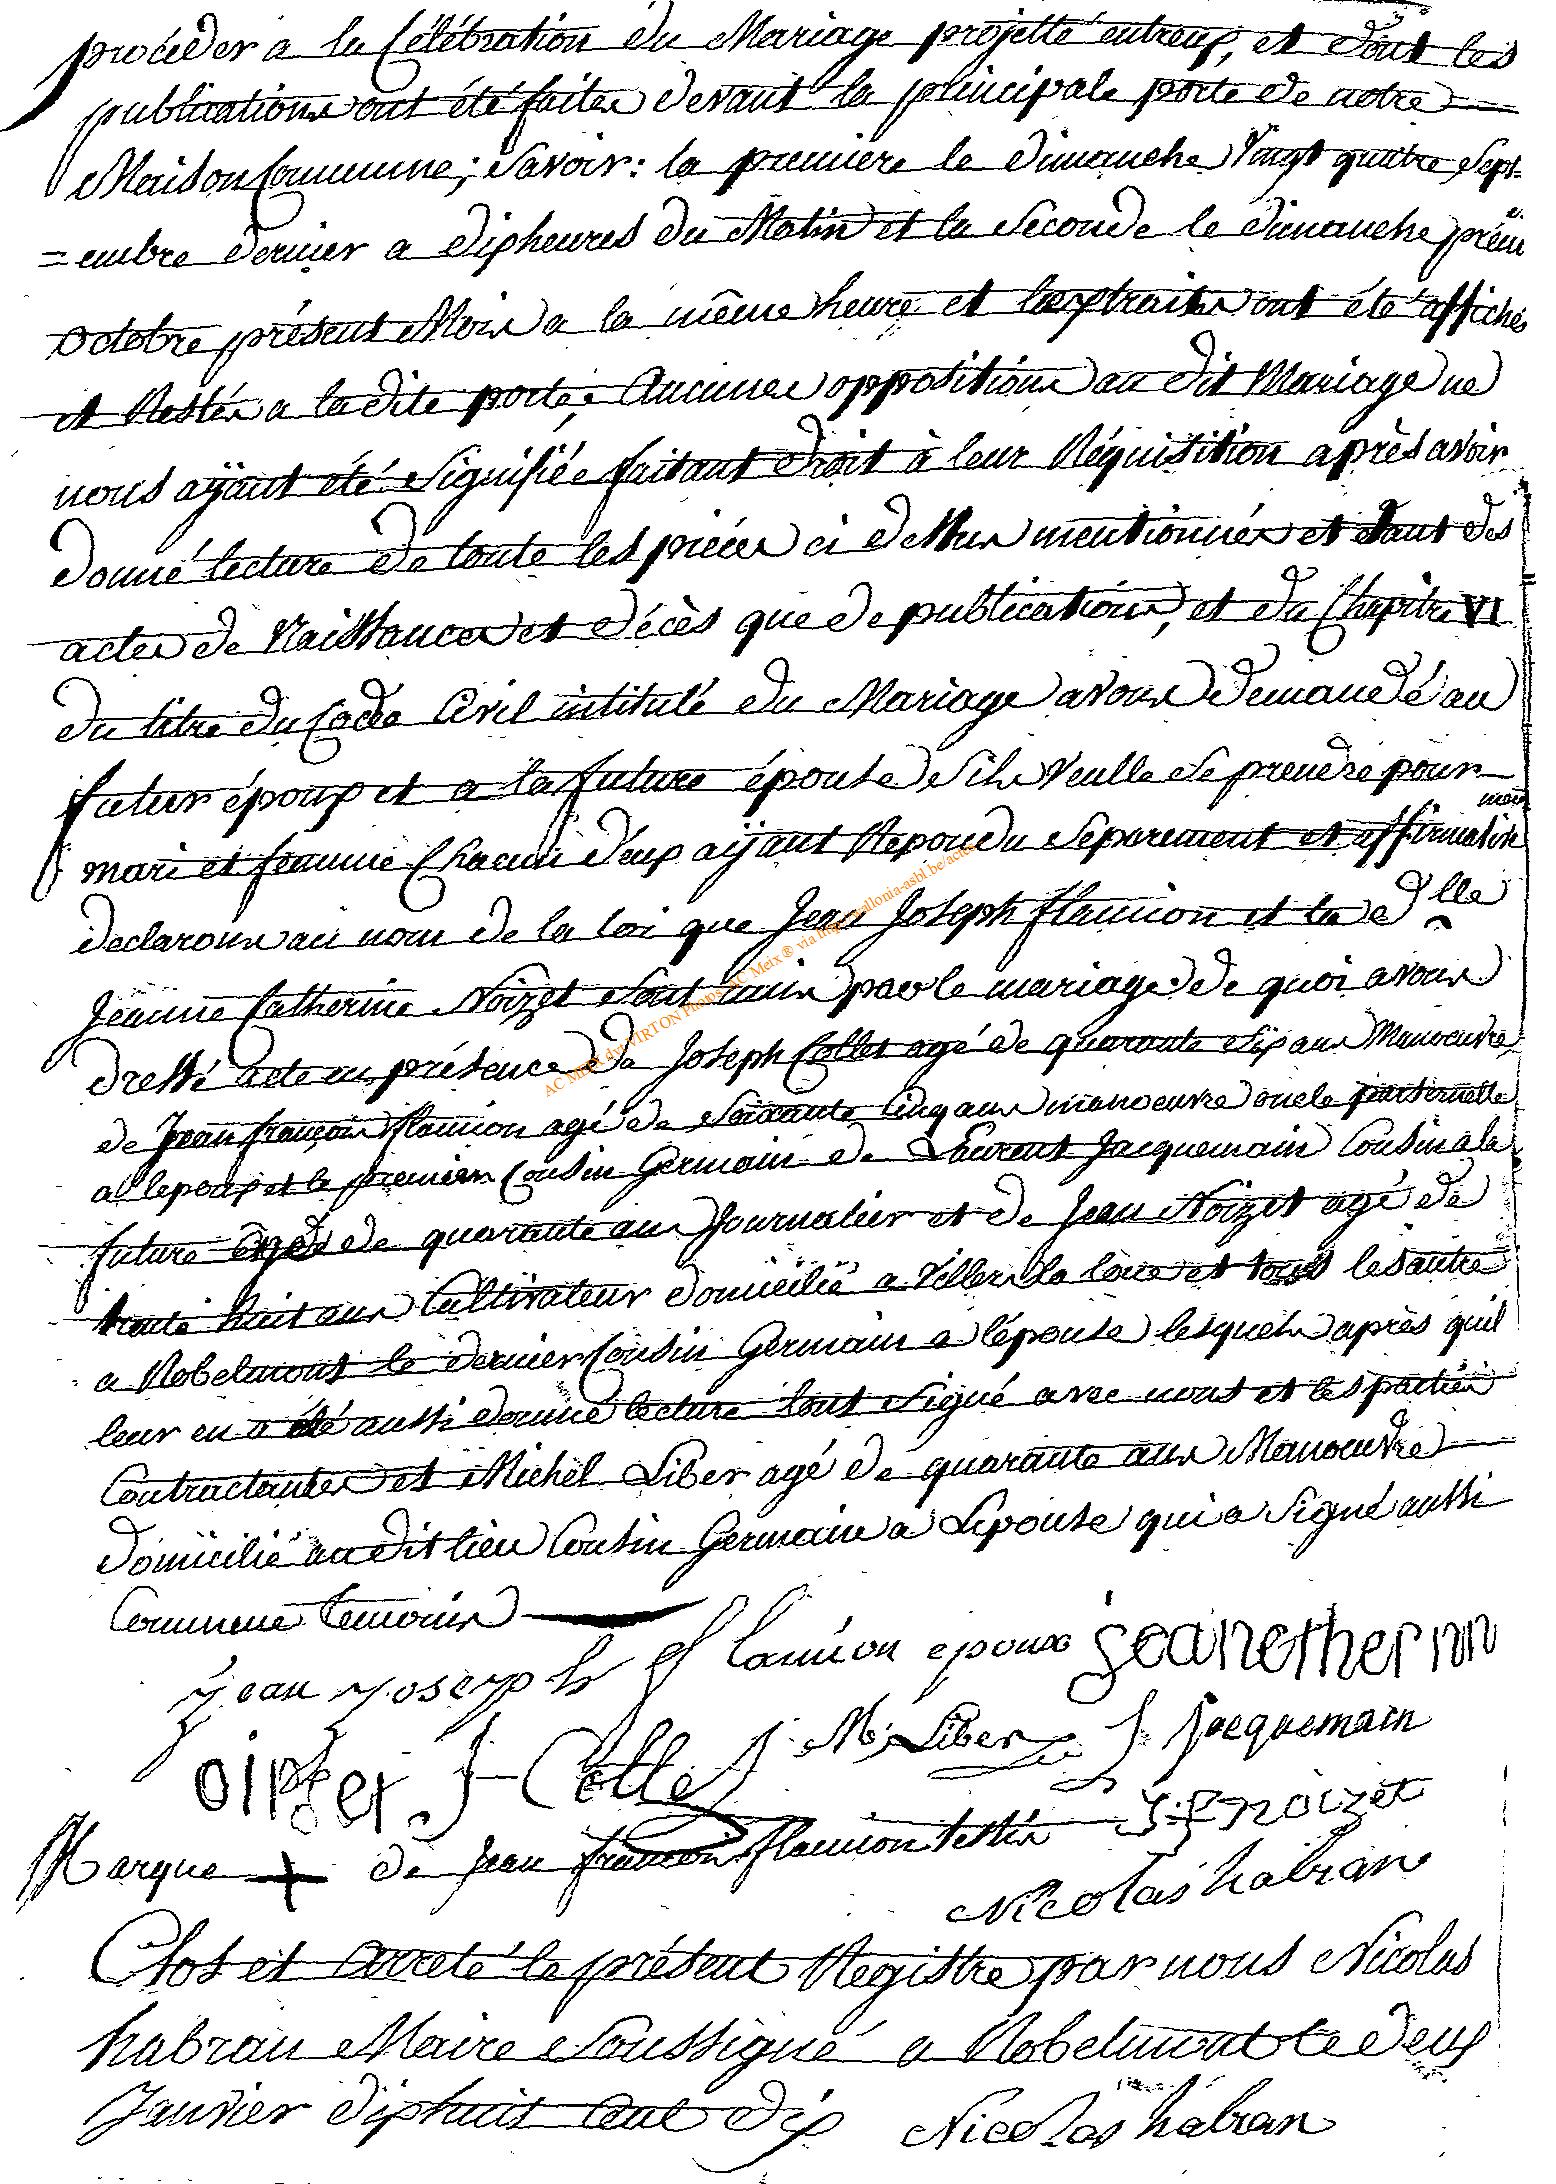 procéder a la Célébration du Mariage projetté entreux, et dont les
publications ont été faites devant la principale porte de notre
Maison Commune; Savoir: la premiere le dimanche Vingt quatre Sept-
=embre dernier a dix heures du Matin et la Seconde le dimanche prem er
octobre présent Mois a la même heure et les extraits ont été affichés
et Restés a la dite porte, Aucunes oppositions au dit Mariage ne
nous aÿant été Signifiée faisant droit à leur Réquisition après avoir
donné lecture de toute les pièces ci dessus mentionnés et tant des
actes de Naissances et décès que de publications, et du Chapitre VI
du titre du Code Civil intitulé du Mariage avons demandé au
futur époux et a la future épouse Sils veulle Se prendre pour
mari et femme Chacun d'eux aÿant Repondu Séparement et affirmative
ment
declarons au nom de la loi que Jean Joseph flamion et la dlle
Jeanne Catherine Noizet Sont unis par le mariage de quoi avons
dressé acte en présence de Joseph Collet agé de quarante Six ans Manoeuvre
de Jean françois flamion agé de Soixante Cinq ans manoeuvre oncle paternelle
a lepoux et le premier Cousin Germain de Laurent Jacquemain Cousin a la
future de quarante ans Journalier et de Jean Noizet agé de
trente huit ans Cultivateur domicilié a Villers la loue et tous les autre
a Robelmont le dernier Cousin Germain a l'épouse lesquels après quil
leur en a été aussi donné lecture tout Signé avec nous et les parties
Contractantes et Michel Liber agé de quarante ans Manoeuvre
domicilié au dit lieu Cousin Germain a Lepouse qui a Signé aussi
Comme temoins
jean joseph flamion epoux jeanetherinn
oipzet J Collet M: Liber J Jacquemain
Marque + de Jean francois flamion testis J:f noizet
Nicolas habran
Clos et Arreté le présent Registre par nous Nicolas
habran Maire Soussigné a Robelmont le deux
Janvier dix huit Cent dix Nicolas habran